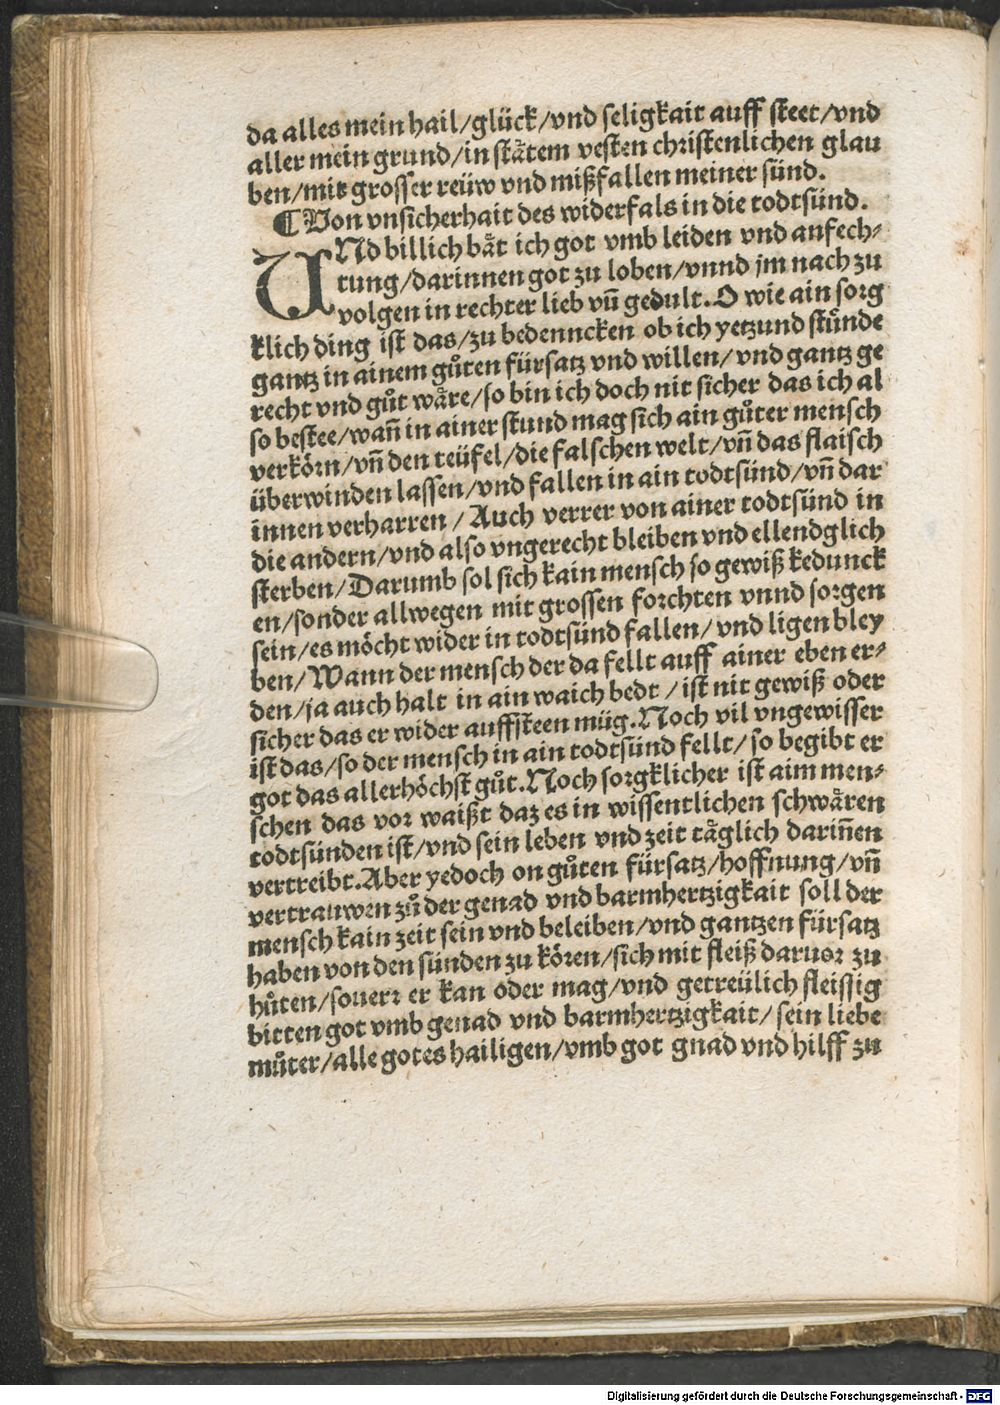 da alles mein hail/glück/vnd seligkait auff steet/vnd
aller mein grund/in stätem vesten christenlichen glau
ben/mit grosser reüw vnd mißfallen meiner sünd.
¶ Von vnsicherhait des widerfals in die todtsünd.
UNd billich bät ich got vmb leiden vnd anfech-
tung/darinnen got zu loben/vnnd jm nach zu
volgen in rechter lieb vñ gedult. O wie ain sorg
klich ding ist das/zu bedenncken ob ich yetzund stůnde
gantz in ainem gůten fürsatz vnd willen/vnd gantz ge
recht vnd gůt wäre/so bin ich doch nit sicher das ich al
so bestee/wañ in ainer stund mag sich ain gůter mensch
verkörn/vñ den teüfel/die falschen welt/vñ das flaisch
überwinden lassen/vnd fallen in ain todtsünd/vñ dar
innen verharren/Auch verrer von ainer todtsünd in
die andern/vnd also vngerecht bleiben vnd ellendglich
sterben/Darumb sol sich kain mensch so gewiß kedunck
en/sonder allwegen mit grossen forchten vnnd sorgen
sein/es möcht wider in todtsünd fallen/vnd ligen bley
ben/Wann der mensch der da fellt auff ainer eben er-
den/ja auch halt in ain waich bedt/ist nit gewiß oder
sicher das er wider auffsteen müg. Noch vil vngewisser
ist das/so der mensch in ain todtsünd fellt/so begibt er
got das allerhöchst gůt. Noch sorgklicher ist aim men-
schen das vor waißt daz es in wissentlichen schwären
todtsünden ist/vnd sein leben vnd zeit täglich dariñen
vertreibt. Aber yedoch on gůten fürsatz/hoffnung/vñ
vertrauwen zů der genad vnd barmhertzigkait soll der
mensch kain zeit sein vnd beleiben/vnd gantzen fürsatz
haben von den sünden zu kören/sich mit fleiß daruor zu
hůten/souerr er kan oder mag/vnd getreülich fleissig
bitten got vmb genad vnd barmhertzigkait/sein liebe
můter/alle gotes hailigen/vmb got gnad vnd hilff zu
Digitalisierung gefördert durch die Deutsche Forschungsgemeinschaft - DFG